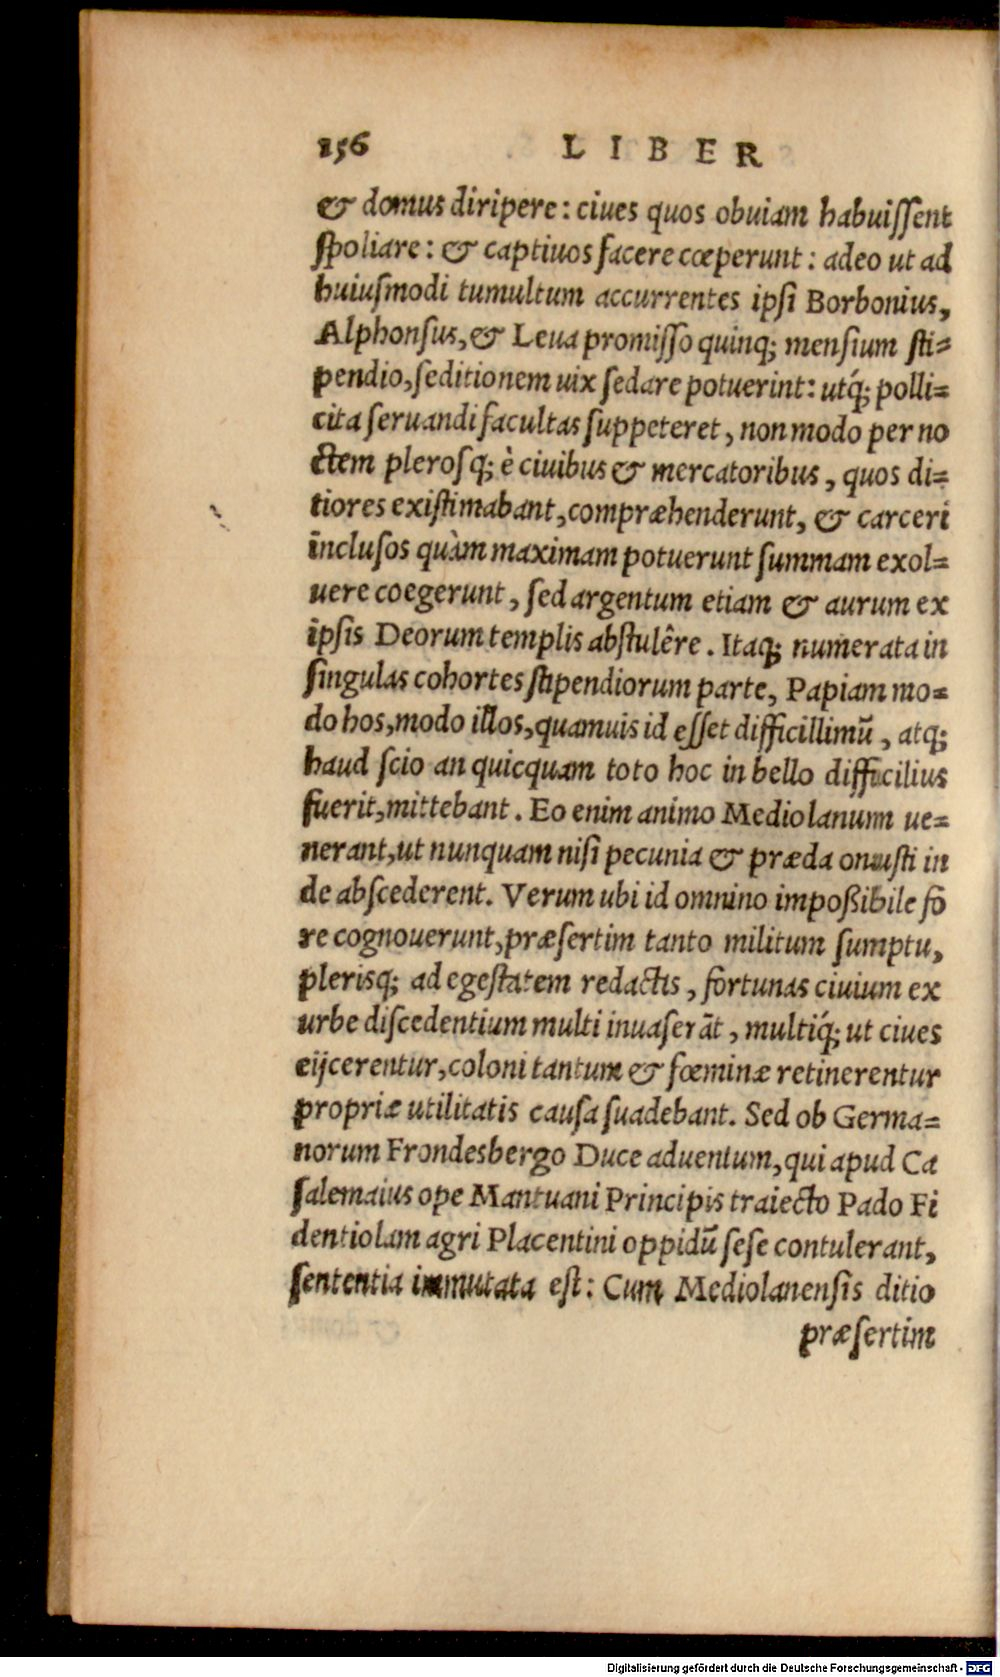 156 LIBER
& domus diripere: ciues quos obuiam habuiſſent
ſpoliare: & captiuos facere cœperunt: adeo ut ad
huiuſmodi tumultum accurrentes ipſi Borbonius,
Alphonſus, & Leua promiſſo quinq; menſium ſti=
pendio, ſeditionem uix ſedare potuerint: utq́; polli=
cita ſeruandi facultas ſuppeteret, non modo per no
ctem pleroſq; è ciuibus & mercatoribus, quos di=
tiores exiſtimabant, compræhenderunt, & carceri
incluſos quàm maximam potuerunt ſummam exol=
uere coegerunt, ſed argentum etiam & aurum ex
ipſis Deorum templis abſtulêre. Itaq; numerata in
ſingulas cohortes ſtipendiorum parte, Papiam mo=
do hos, modo illos, quamuis id eſſet difficillimũ, atq;
haud ſcio an quicquam toto hoc in bello difficilius
fuerit, mittebant. Eo enim animo Mediolanum ue=
nerant, ut nunquam niſi pecunia & præda onuſti in
de abſcederent. Verum ubi id omnino impoßibile fo
re cognouerunt, præſertim tanto militum ſumptu,
plerisq; ad egeſtatem redactis, fortunas ciuium ex
urbe diſcedentium multi inuaſerāt, multiq́; ut ciues
eijcerentur, coloni tantum & fœminæ retinerentur
propriæ utilitatis cauſa ſuadebant. Sed ob Germa=
norum Frondesbergo Duce aduentum, qui apud Ca
ſalemaius ope Mantuani Principis traiecto Pado Fi
dentiolam agri Placentini oppidũ ſeſe contulerant,
ſententia immutata eſt: Cum Mediolanenſis ditio
præſertim
Digitalisierung gefördert durch die Deutsche Forschungsgemeinschaft - DFG